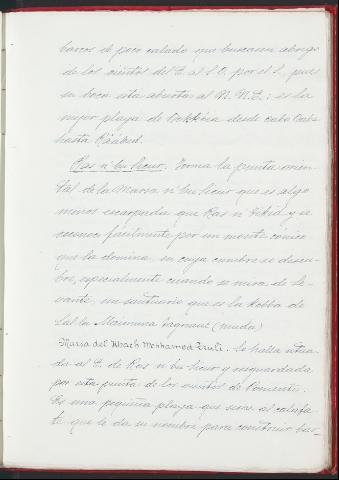 barcos de poco calado que buscasen abrigo
de los vientos del E. al S.O. por el S., pues
su boca está abierta al N.N.E.: es la
mejor playa de Bokkóia desde cabo
hasta
Ras n'bu Sicur. Forma la punta orien-
tal de la Marsa n'bu Sicur que es algo
menos escarpada que Ras n' y se
reconoce facilmente por un monte cónico
que la domina, en cuya cumbre se descu-
bre, especialmente cuando se mira de le-
vante, un santuario que es la Kobba de
Lal-la Mimuna (muda)
Marsa del Hach Mohhamed Zruli. Se halla situa-
da al E. de Ras n bu Sicur y resguardada
por esta punta de los vientos de Poniente.
Es una pequeña playa que sirve al calafa-
te que le da su nombre para construir bar-